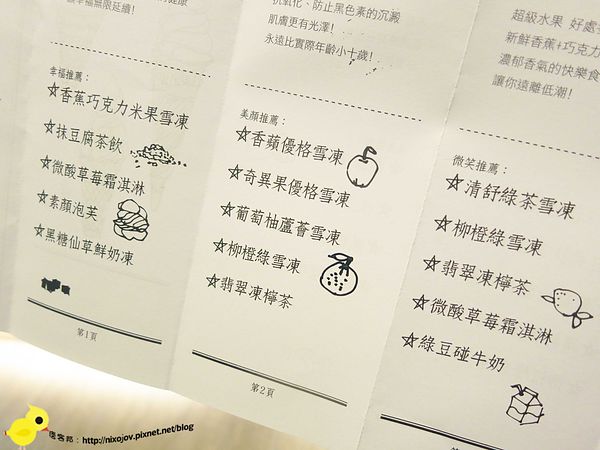 幸福無限延續!
幸福推薦:
☆香蕉巧克力米果雪凍
☆抹豆腐茶飲
☆微酸草莓霜淇淋
☆素顏泡芙
☆黑糖仙草鮮奶凍
第1頁
抗氧化、防止黑色素的沉澱
肌膚更有光澤!
永遠比實際年齡小十歲!
美顏推薦:
☆香蘋優格雪凍
☆奇異果優格雪凍
☆葡萄柚蘆薈雪凍
☆柳橙綠雪凍
☆翡翠凍檸茶
第2頁
超級水果 好處
新鮮香蕉+巧克力
濃郁香氣的快樂食
讓你遠離低潮!
微笑推薦:
☆清舒綠茶雪凍
☆柳橙綠雪凍
☆翡翠凍檸茶
☆微酸草莓霜淇淋
☆綠豆碰牛奶
痞客邦:http://nixojov.pixnet.net/blog